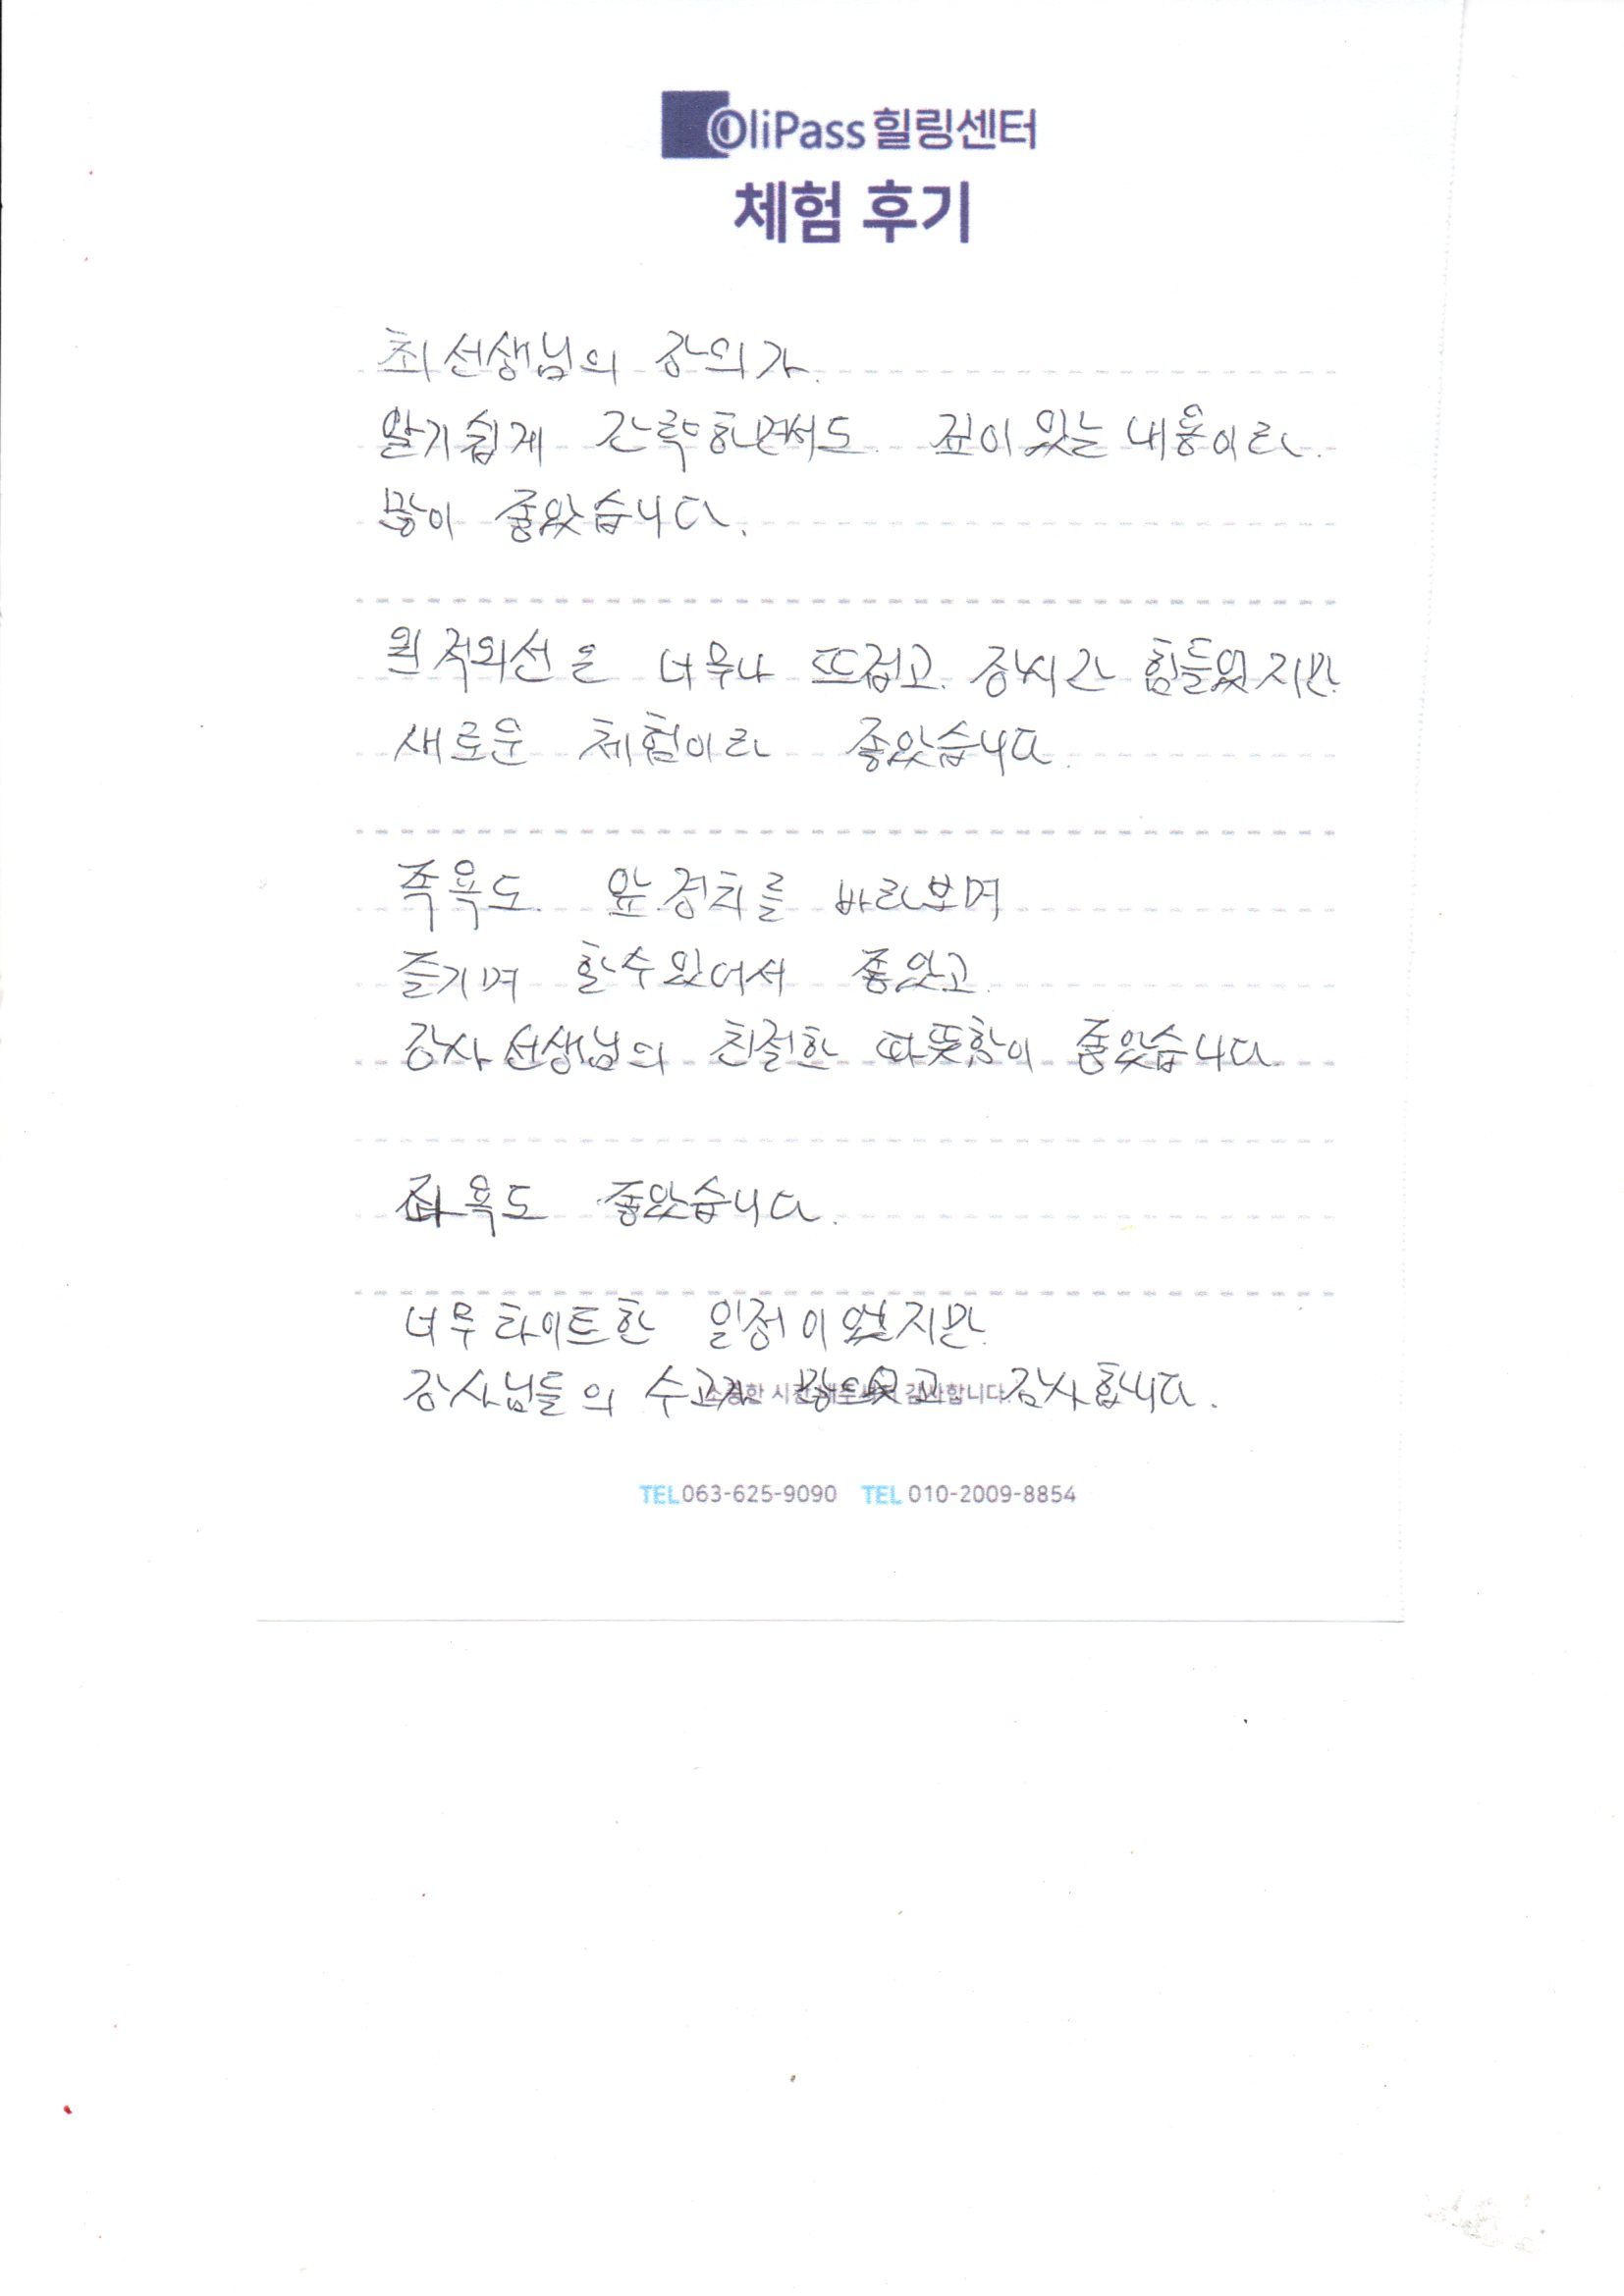 OliPass 힐링센터
체험 후기
최선생님의 강의가
알기쉽게 간략하면서도 깊이 있는 내용이라
많이 좋았습니다.
원적외선은 너무나 뜨겁고 장시간 힘들었지만
새로운 체험이라 좋았습니다.
족욕도 앞경치를 바라보며
즐기며 할수있어서 좋았고
강사선생님의 친절한 따뜻함이 좋았습니다.
좌욕도 좋았습니다.
너무 타이트한 일정이었지만
강사님들의 수고가 많으셨고 감사합니다.
소중한 시간 내주셔서 감사합니다.
TEL 063-625-9090 TEL 010-2009-8854